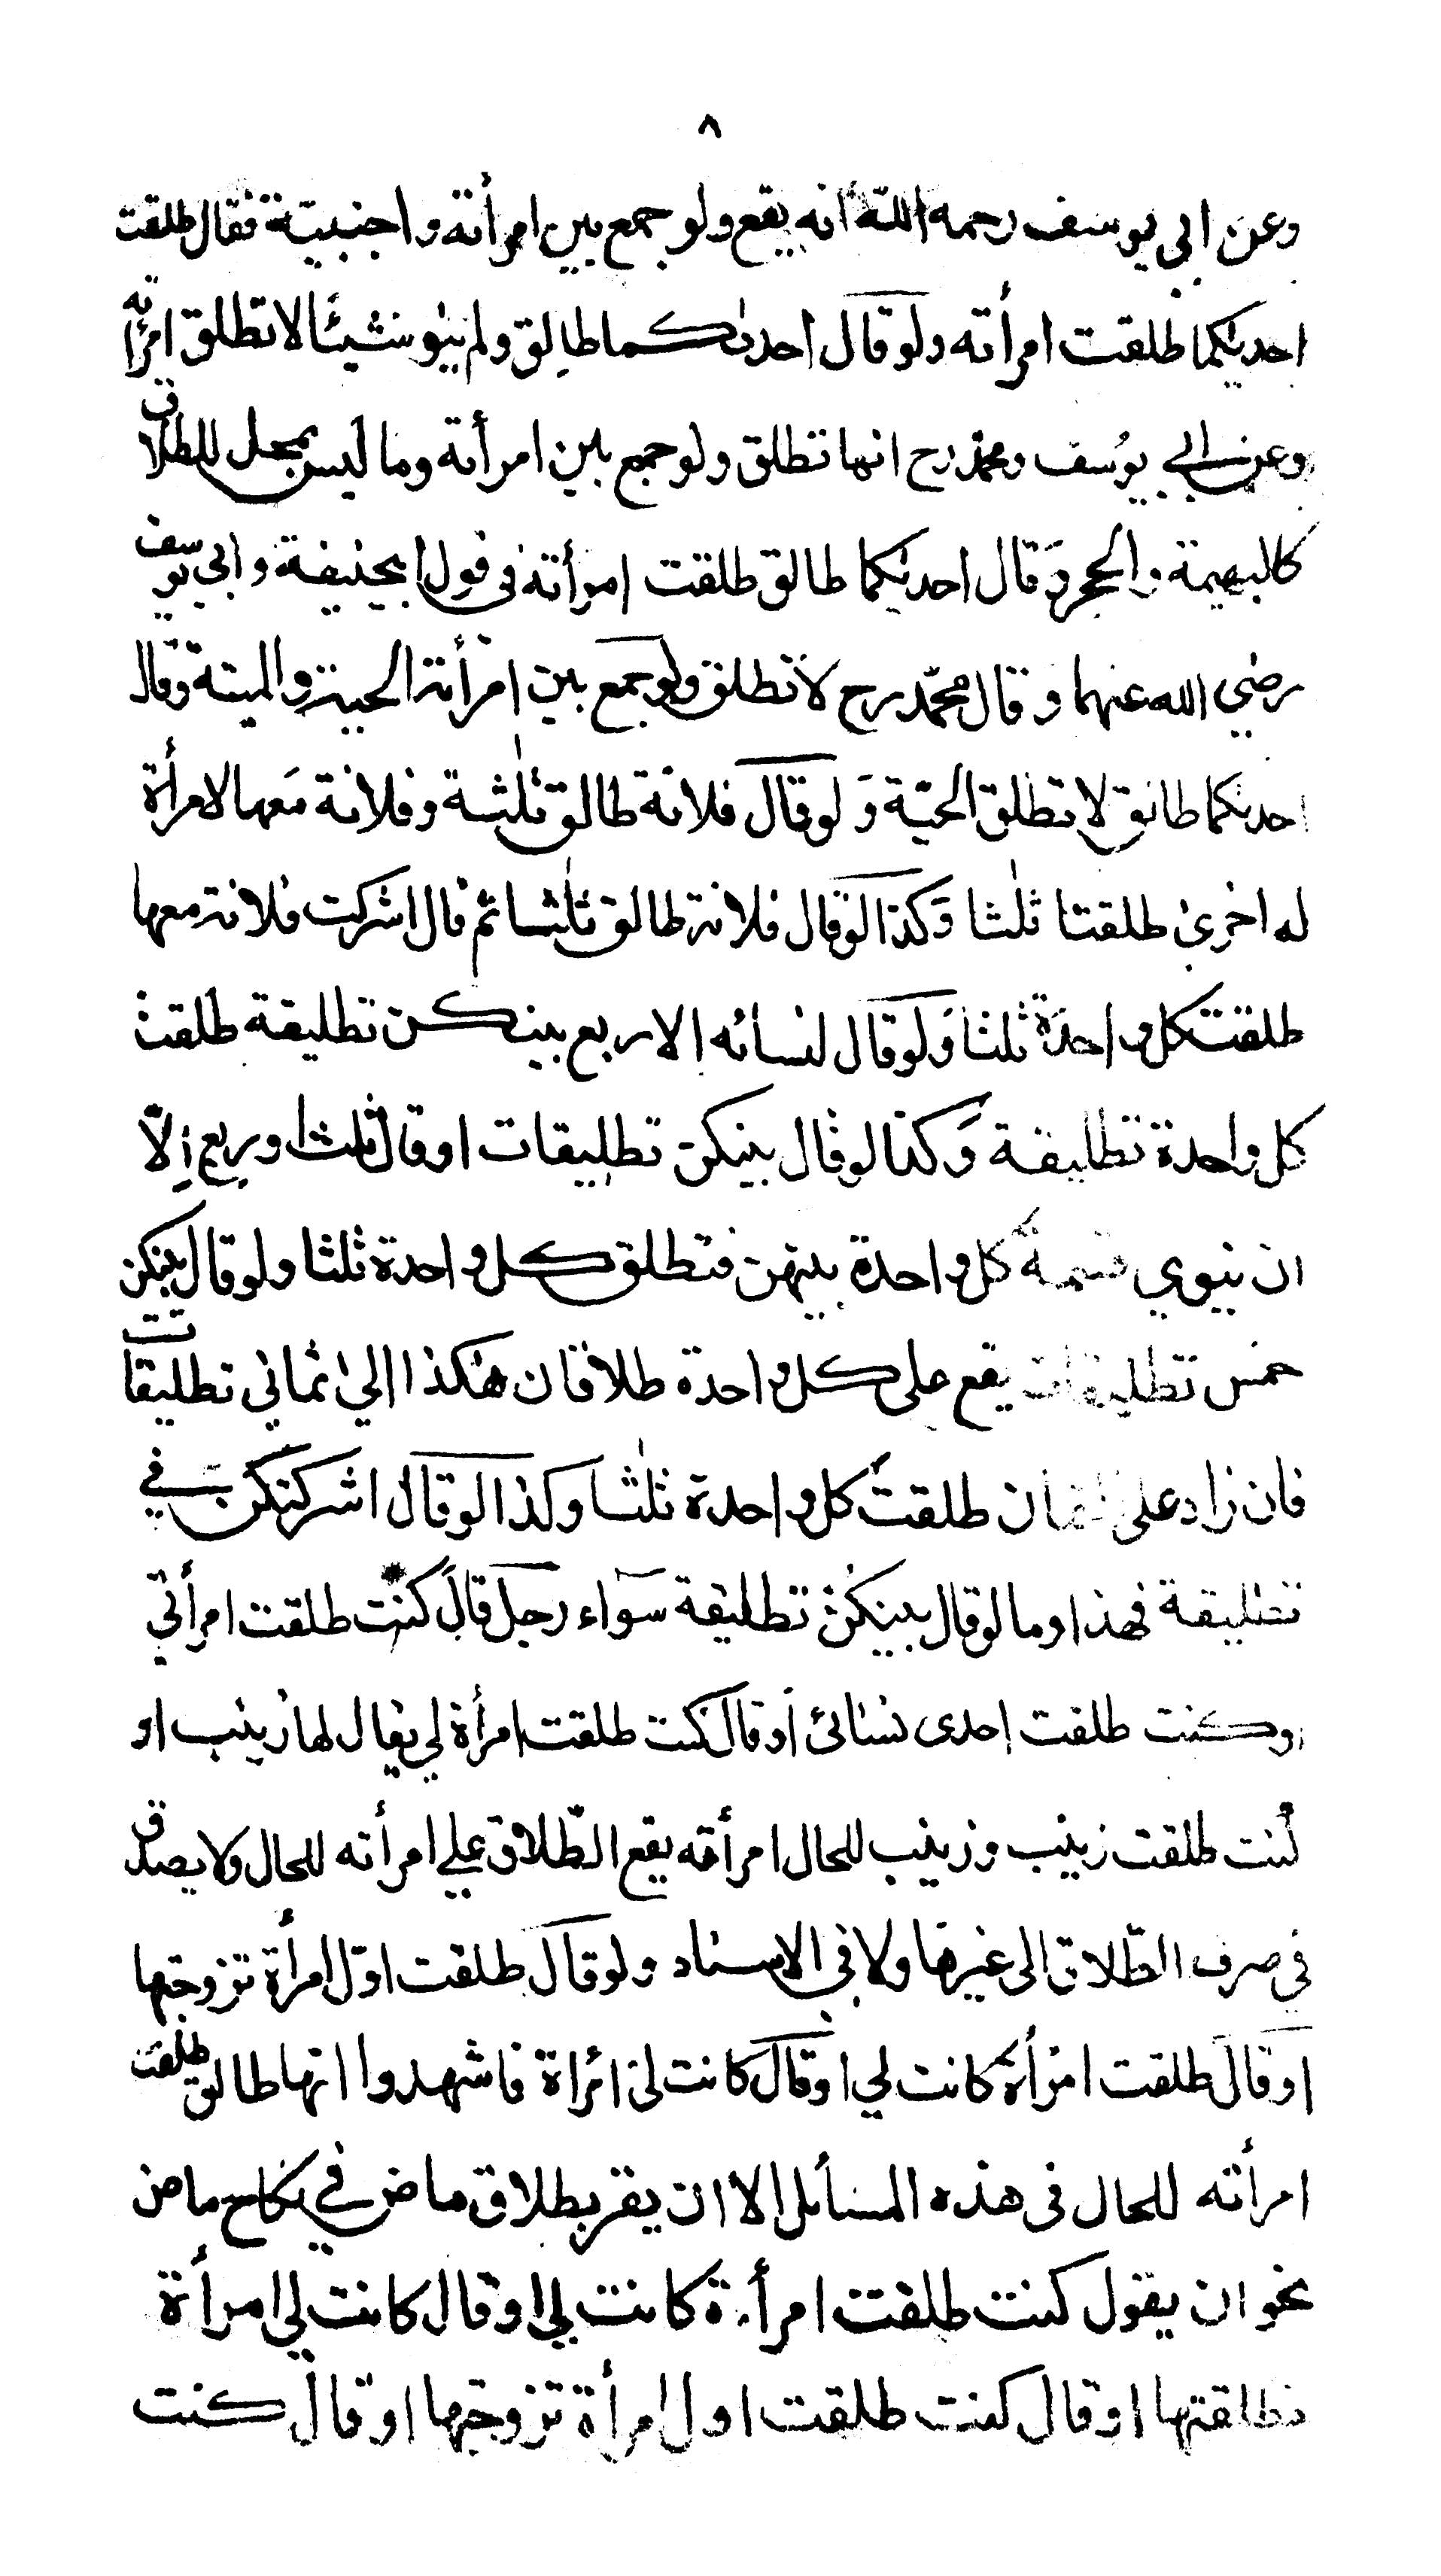 ٨
وعن ابي يوسف رحمه الله انه يقع ولو جمع بين امرأته واجنبية فقال طلقت
احديكما طلقت امرأته ولو قال احدىكما طالق ولم ينو شيئا لا تطلق امرأته
وعن ابي يوسف ومحمد رح انها تطلق ولو جمع بين امرأته وما ليس بمحل للطلاق
كالبهيمة والحجر وقال احدىكما طالق طلقت امرأته في قول ابيحنيفة وابي يوسف
رضي الله عنهما وقال محمد رح لا تطلق ولو جمع بين امرأته الحية والميتة وقال
احدىكما طالق لا تطلق الحية ولو قال فلانة طالق ثلٰثة وفلانة معها لامرأة
له اخرى طلقتا ثلٰثا وكذا لو قال فلانة طالق ثلٰثا ثم قال اشركت فلانة معها
طلقت كل واحدة ثلثا ولو قال لنسائه الاربع بينكن تطليقة طلقت
كل واحدة تطليقة وكذا لو قال بينكن تطليقات او قال ثلثا وربع الّا
ان ينوي قسمة كل واحدة بينهن فتطلق كل واحدة ثلثا ولو قال بينكن
خمس تطليقات يقع على كل واحدة طلاقان هٰكذا الى ثماني تطليقات
فان زاد على ثمان طلقت كل واحدة ثلٰثا وكذا لو قال اشركتكن في
تطليقة فهذا وما لو قال بينكن تطليقة سواء رجل قال كنت طلقت امرأتي
او كنت طلقت احدى نسائي او قال كنت طلقت امرأة لي يقال لها زينب او
كنت طلقت زينب وزينب للحال امرأته يقع الطّلاق على امرأته للحال ولا يصدق
في صرف الطّلاق الى غيرها ولا في الاسناد ولو قال طلقت اوّل امرأة تزوجتها
او قال طلقت امرأة كانت لي او قال كانت لي امرأة فاشهدوا انها طالق طلقت
امرأته للحال في هذه المسائل الا ان يقر بطلاق ماض في نكاح ماض
نحو ان يقول كنت طلقت امرأة كانت لي او قال كانت لي امرأة
فطلقتها او قال كنت طلقت اول امرأة تزوجتها او قال كنت